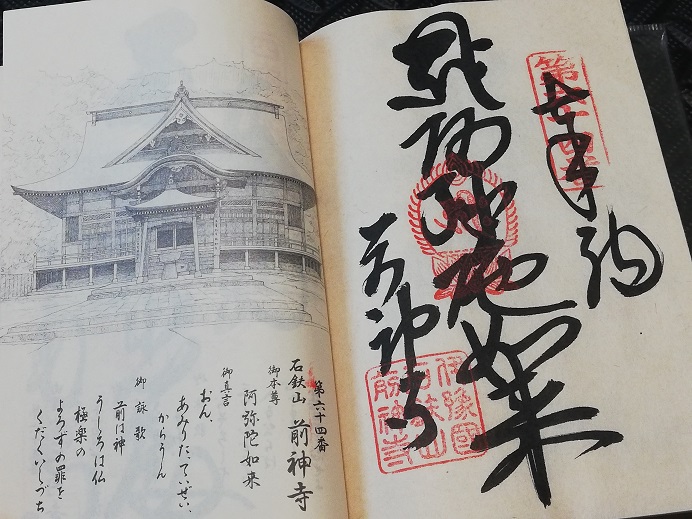 第六十四番
奉納
阿弥陀如来
前神寺
伊豫國
石鉄山
前神寺
第六十四番
石鉄山 前神寺
御本尊
阿弥陀如来
御真言
おん、
あみりた、ていぜい、
からうん
御詠歌
前は神
うしろは仏
極楽の
よろずの罪を
くだくいしづち